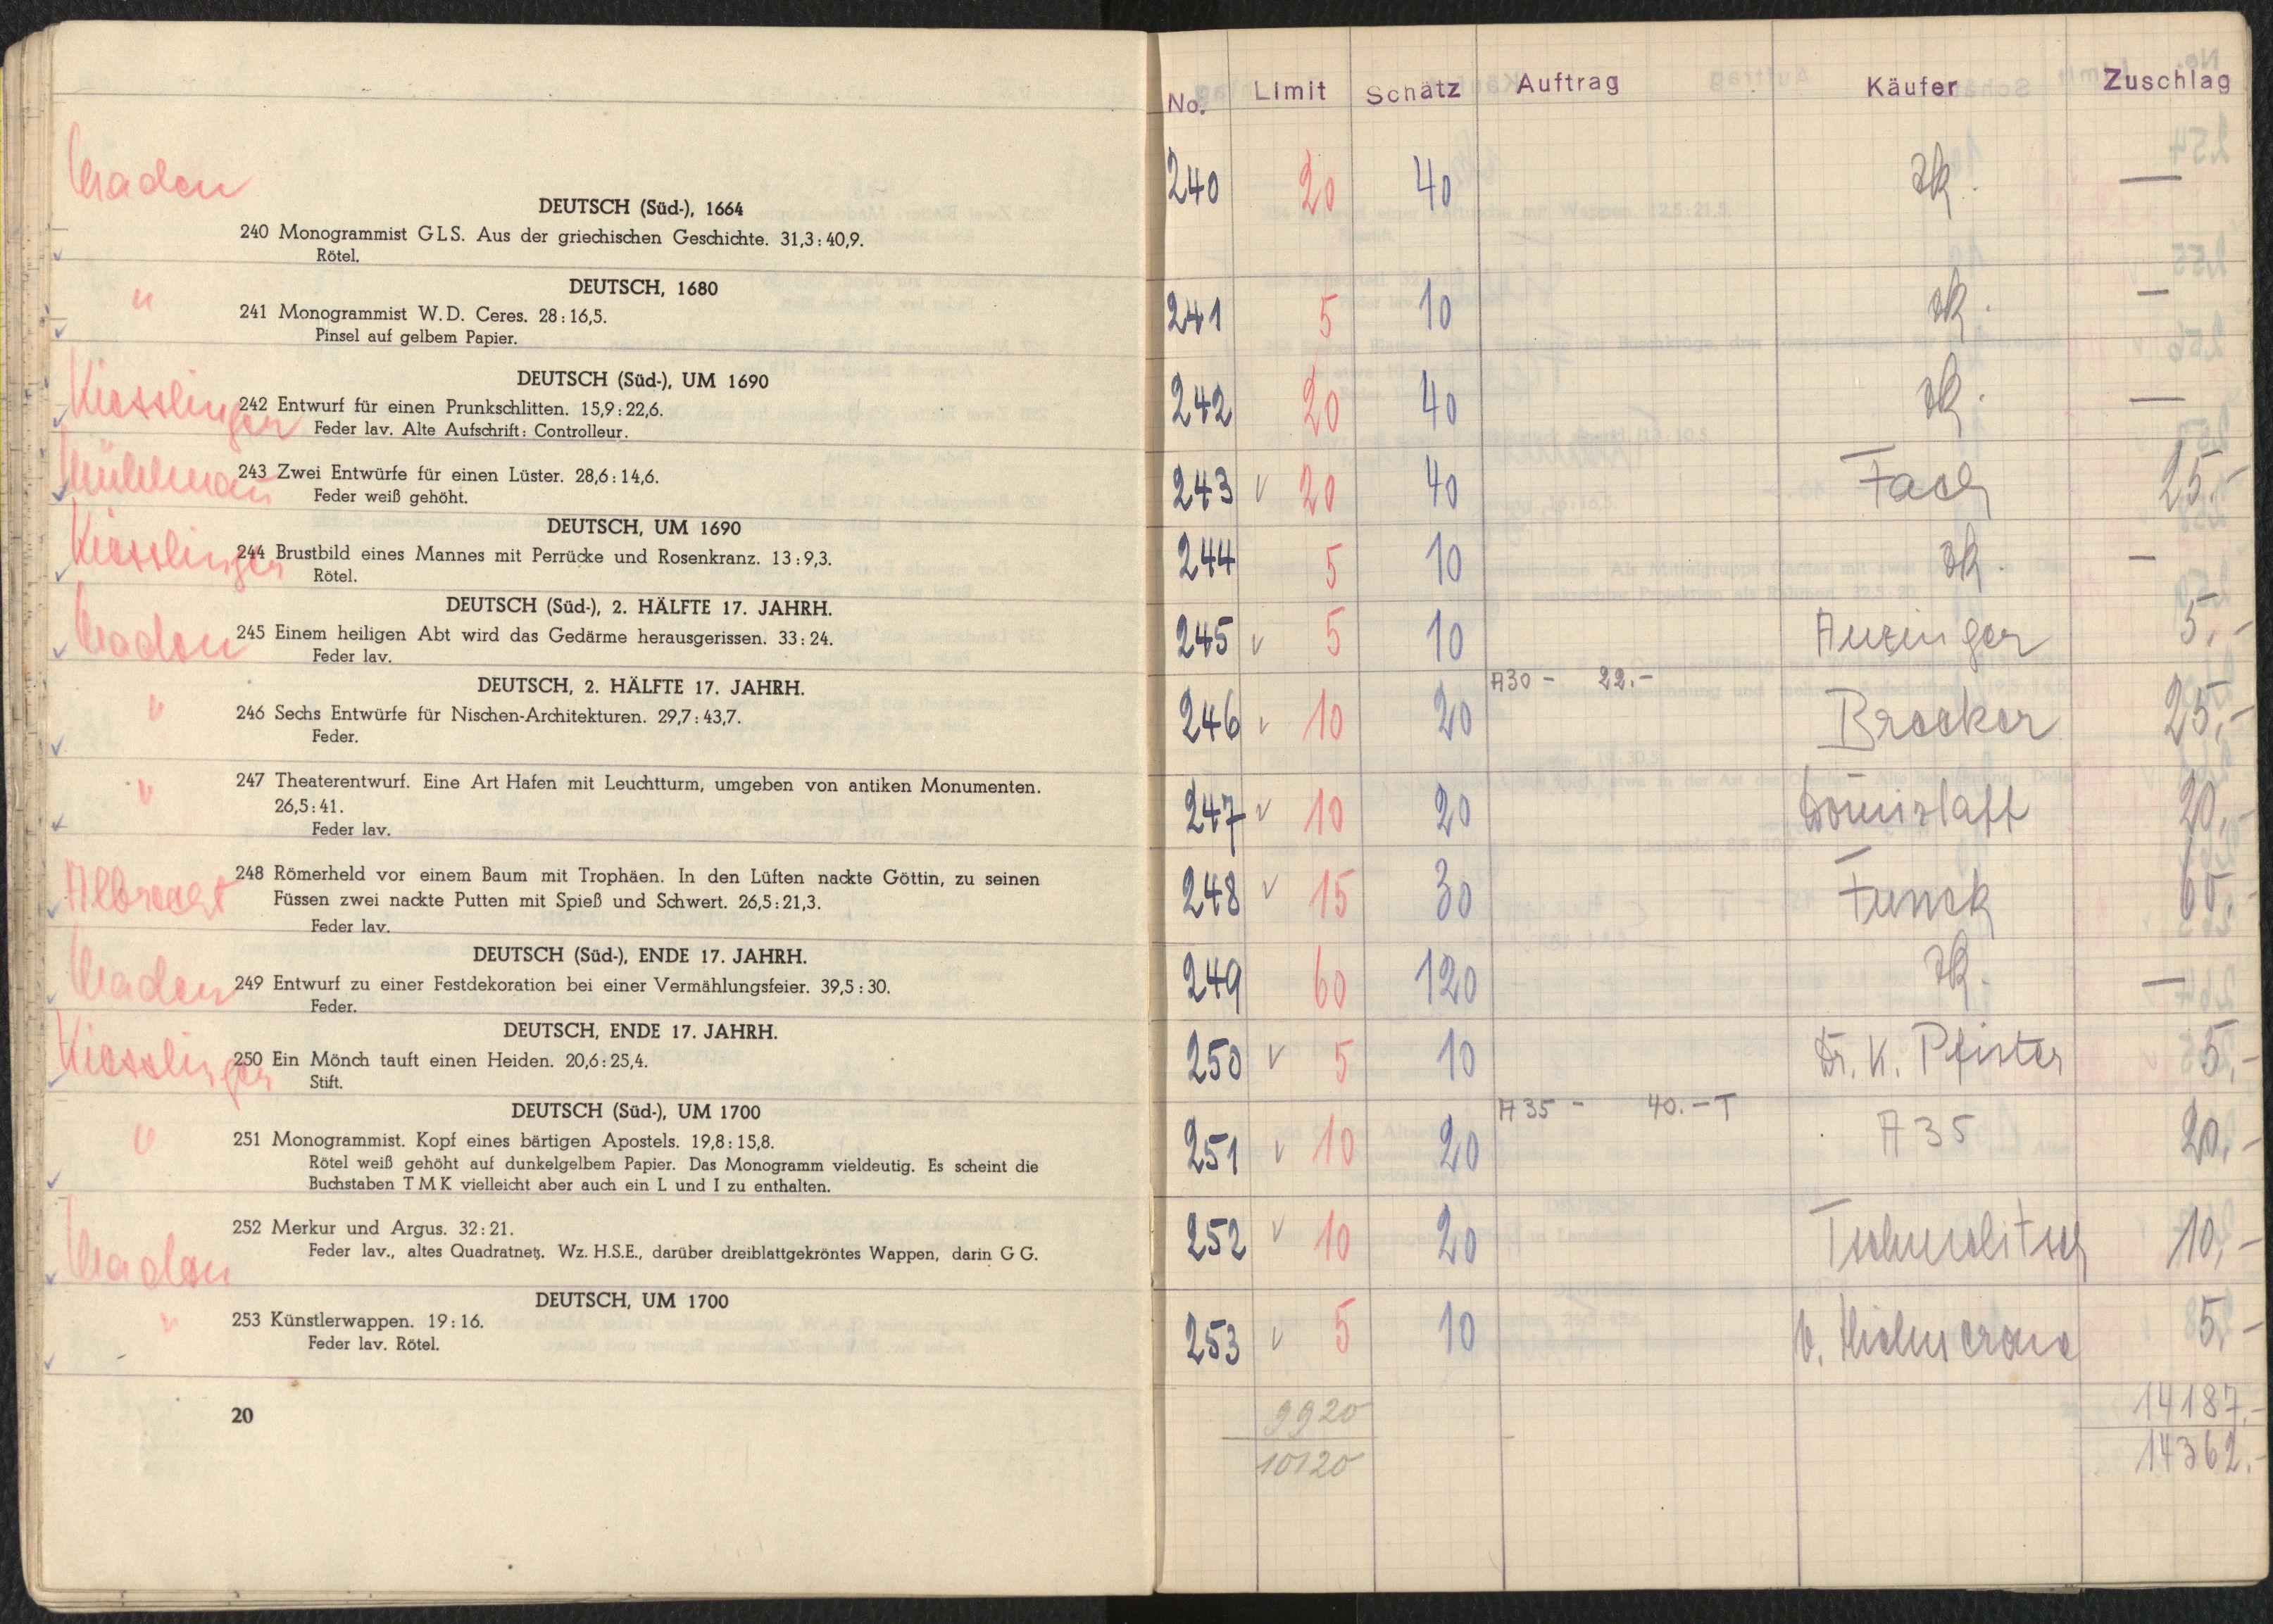 Maden
DEUTSCH (Süd-), 1664
240 Monogrammist GLS. Aus der griechischen Geschichte. 31,3:40,9.
Rötel.
"
DEUTSCH, 1680
241 Monogrammist W.D. Ceres. 28:16,5.
Pinsel auf gelbem Papier.
Kiesslinger
DEUTSCH (Süd-), UM 1690
242 Entwurf für einen Prunkschlitten. 15,9:22,6.
Feder lav. Alte Aufschrift: Controlleur.
243 Zwei Entwürfe für einen Lüster. 28,6:14,6.
Feder weiß gehöht.
Kiesslinger
DEUTSCH, UM 1690
244 Brustbild eines Mannes mit Perrücke und Rosenkranz. 13:9,3.
Rötel.
Maden
DEUTSCH (Süd-), 2. HÄLFTE 17. JAHRH.
245 Einem heiligen Abt wird das Gedärme herausgerissen. 33:24.
Feder lav.
"
DEUTSCH, 2. HÄLFTE 17. JAHRH.
246 Sechs Entwürfe für Nischen-Architekturen. 29,7:43,7.
Feder.
"
247 Theaterentwurf. Eine Art Hafen mit Leuchtturm, umgeben von antiken Monumenten.
26,5:41.
Feder lav.
Albrecht
248 Römerheld vor einem Baum mit Trophäen. In den Lüften nackte Göttin, zu seinen
Füssen zwei nackte Putten mit Spieß und Schwert. 26,5:21,3.
Feder lav.
Maden
DEUTSCH (Süd-), ENDE 17. JAHRH.
249 Entwurf zu einer Festdekoration bei einer Vermählungsfeier. 39,5:30.
Feder.
Kiesslinger
DEUTSCH, ENDE 17. JAHRH.
250 Ein Mönch tauft einen Heiden. 20,6:25,4.
Stift.
"
DEUTSCH (Süd-), UM 1700
251 Monogrammist. Kopf eines bärtigen Apostels. 19,8:15,8.
Rötel weiß gehöht auf dunkelgelbem Papier. Das Monogramm vieldeutig. Es scheint die
Buchstaben TMK vielleicht aber auch ein L und I zu enthalten.
Maden
252 Merkur und Argus. 32:21.
Feder lav., altes Quadratnetz. Wz. H.S.E., darüber dreiblattgekröntes Wappen, darin GG.
"
DEUTSCH, UM 1700
253 Künstlerwappen. 19:16.
Feder lav. Rötel.
20
No. Limit Schätz Auftrag Käufer Zuschlag
240 20 40 —
241 5 10 —
242 20 40 —
243 v 20 40 Fach 25.-
244 5 10 —
245 v 5 10 Auzinger 5.-
A30 - 22.-
246 v 10 20 Brecker 25,-
247 v 10 20 Domizlaff 20,-
248 v 15 30 Funck 60.-
249 60 120 —
250 v 5 10 Dr. K. Pfister 5,-
A35 - 40.-T
251 v 10 20 A35 20.-
252 v 10 20 10,-
253 v 5 10 5,-
9920 14187.-
10120 14362.-